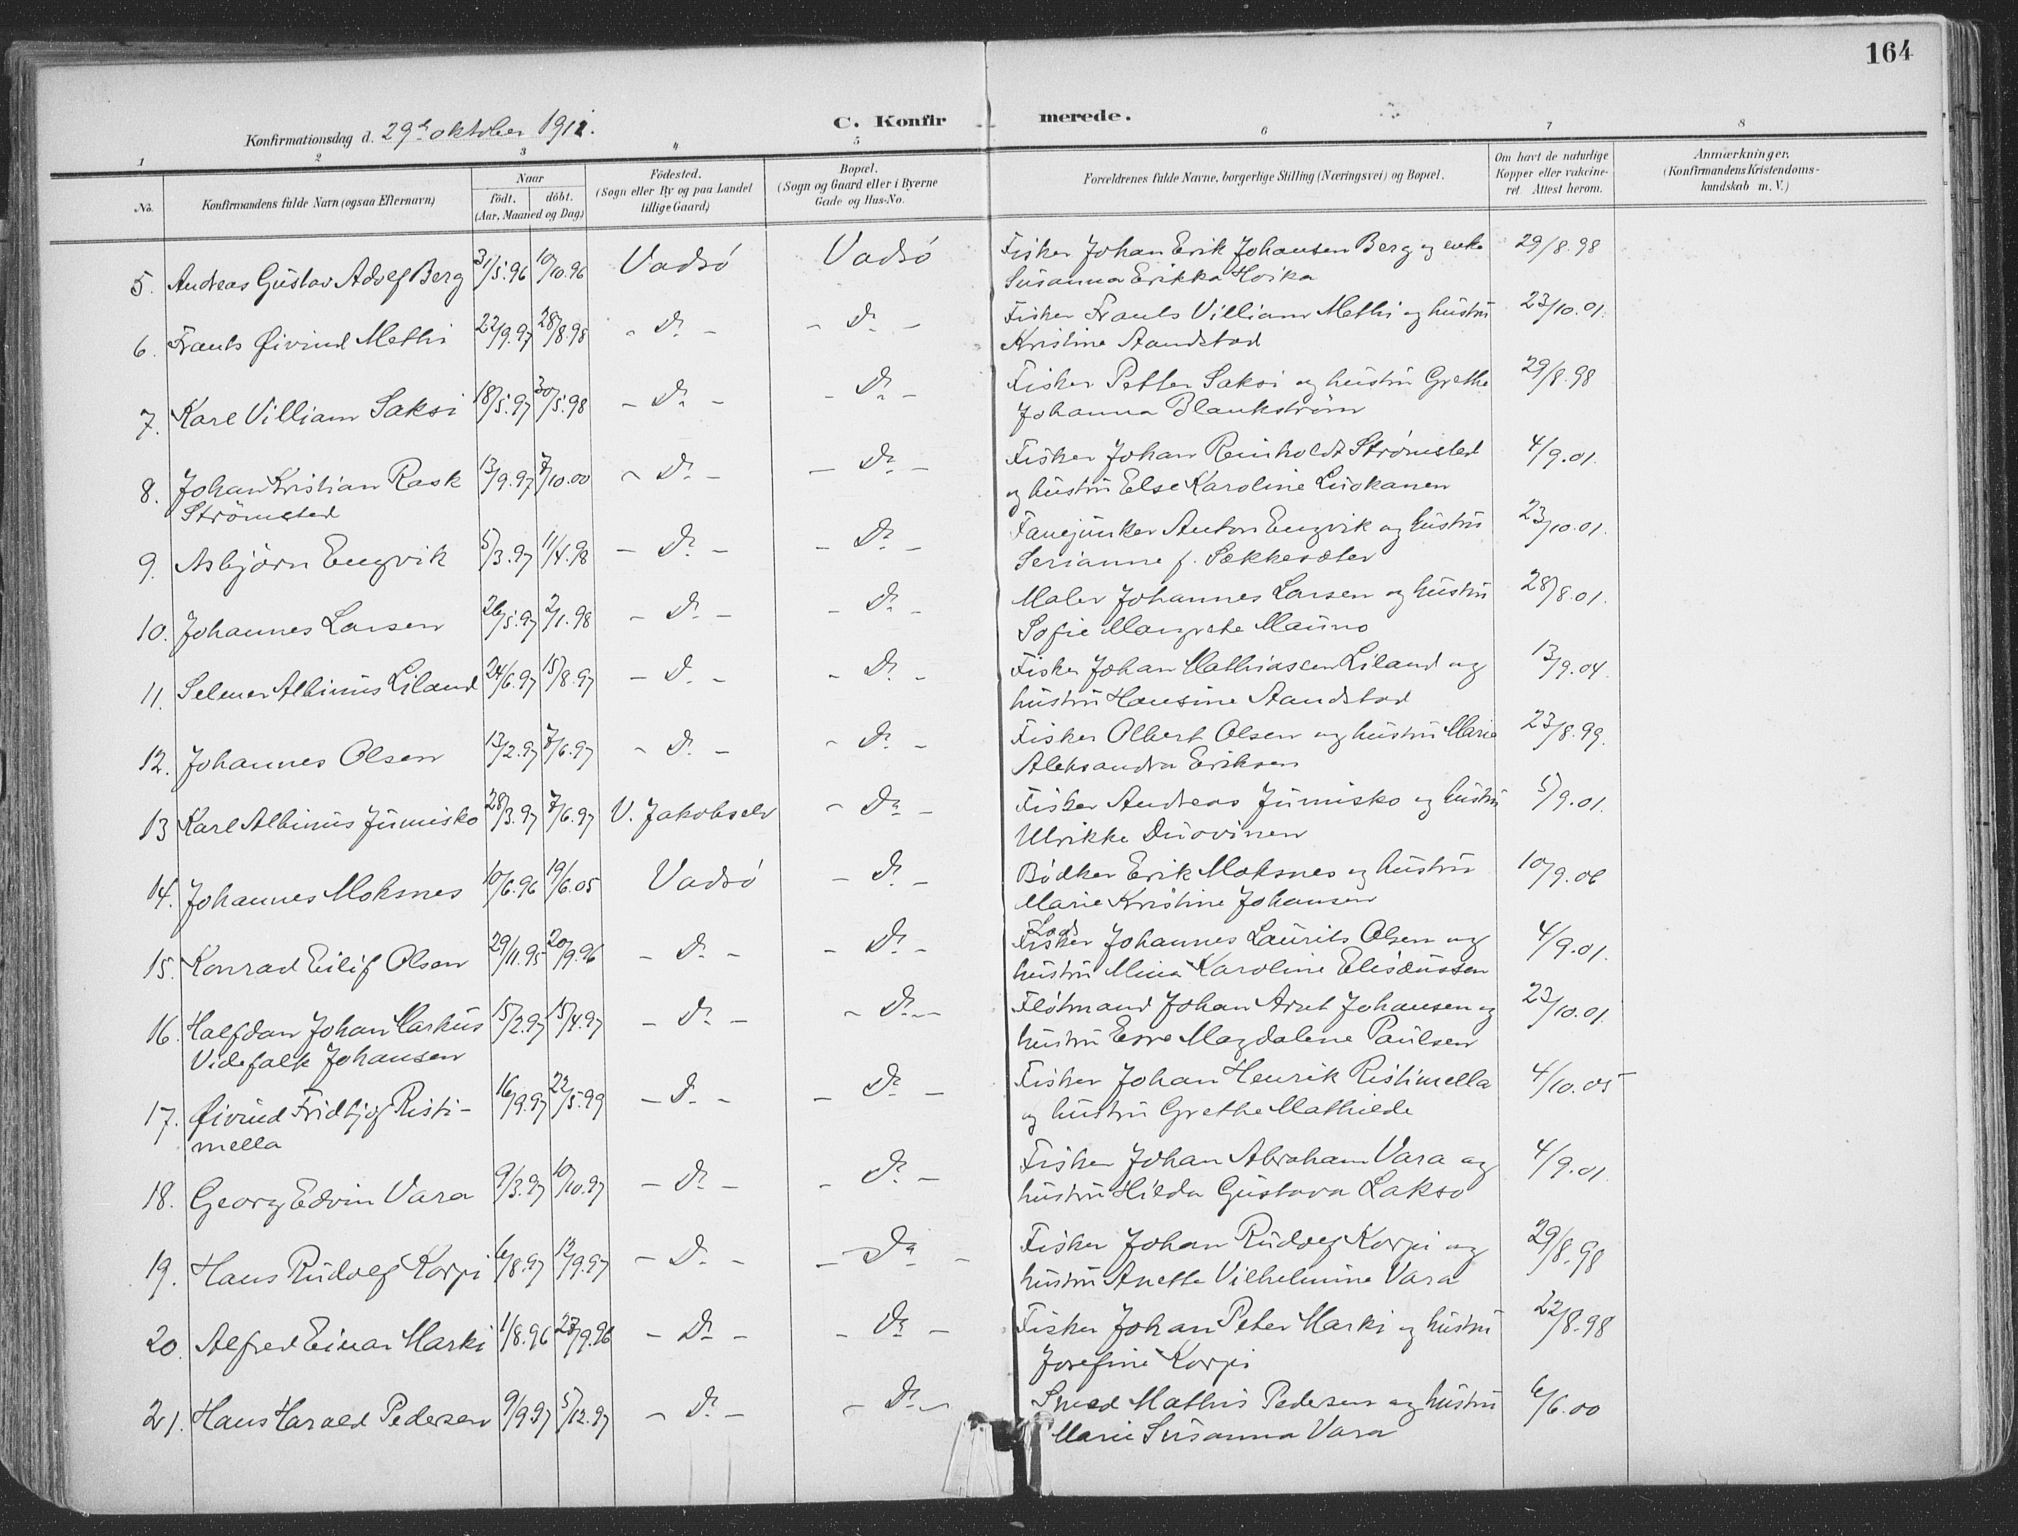 164
Konfirmationsdag d. 29de oktober 1911.
C. Konfirmerede.
1 2 3 4 5 6 7 8
No.
Konfirmandens fulde Navn (ogsaa Efternavn)
Naar
födt. döbt.
(Aar, Maaned og Dag)
Födested.
(Sogn eller By og paa Landet
tillige Gaard)
Bopæl.
(Sogn og Gaard eller i Byerne
Gade og Hus-No.
Forældrenes fulde Navne, borgerlige Stilling (Næringsvei) og Bopæl.
Om havt de naturlige
Kopper eller vakcine-
ret. Attest herom.
Anmærkninger.
(Konfirmandens Kristendoms-
kundskab m. V.)
5. Andreas Gustav Adolf Berg 31/5.96 10/10.96 Vadsö Vadsö Fisker Johan Erik Johansen Berg og enke 29/8.98
Susanna Erikka Hoika
6. Frants Øivind Methi 22/9.97 28/8.98 - Do - - Do - Fisker Frants Villiam Methi og hustru 23/10.01.
Kristine Aandstad
7. Karl Villiam Saksi 18/5.97 30/5.98 - Do - - Do - Fisker Petter Saksi og hustru Grethe 29/8.98
Johanna Blankström
8. Johan Kristian Rask 13/9.97 7/10.00 - Do - - Do - Fisker Johan Reinholdt Strömsted 4/9.01.
Strömsted og hustru Else Karoline Luokanen
9. Asbjörn Engvik 5/3.97 11/4.98 - Do - - Do - Fanejunker Anton Engvik og hustru 23/10.01.
Serianne f. Sekkesæter
10. Johannes Larsen 26/5.97 2/1.98 - Do - - Do - Maler Johannes Larsen og hustru 28/8.01.
Sofie Margrete Mauno
11. Selmer Albinus Liland 24/6.97 15/8.97 - Do - - Do - Fisker Johan Mathiassen Liland og 13/9.04.
hustru Hansine Aandstad
12. Johannes Olsen 13/2.97 7/6.97 - Do - - Do - Fisker Olbert Olsen og hustru Marie 23/8.99.
Aleksandra Eriksen
13 Karl Albinus Jumisko 28/3.97 7/6.97 V. Jakobselv - Do - Fisker Andreas Jumisko og hustru 5/9.01.
Ulrikke Duovinen
14. Johannes Moksnes 10/6.96 19/6.05 Vadsö - Do - Bödker Erik Moksnes og hustru 10/9.06
Marie Kristine Johansen
15. Konrad Eilif Olsen 29/11.95 20/9.96 - Do - - Do - Fisker Johannes Laurits Olsen og 4/9.01.
hustru Mina Karoline Elisæussen
16. Halfdan Johan Markus 15/2.97 15/4.97 - Do - - Do - Flötmand Johan Arnt Johansen og 23/10.01.
Videfalk Johansen hustru Esre Magdalene Paulsen
17. Øivind Fridtjof Risti- 16/9.97 22/5.99 - Do - - Do - Fisker Johan Henrik Ristimella 4/10.05
mella og hustru Grethe Mathilde
18. Georg Edvin Vara 9/3.97 10/10.97 - Do - - Do - Fisker Johan Abraham Vara og 4/9.01.
hustru Hilda Gustava Lakso
19. Hans Rudolf Korpi 6/8.97 12/9.97 - Do - - Do - Fisker Johan Rudolf Korpi og 29/8.98
hustru Anette Vilhelmine Vara
20. Alfred Einar Marki 1/8.96 27/9.96 - Do - - Do - Fisker Johan Peter Marki og hustru 22/8.98
Josefine Korpi
21. Hans Harald Pedersen 9/9.97 5/12.97 - Do - - Do - Smed Mathis Pedersen og hustru 6/6.00
Marie Susanna Vara